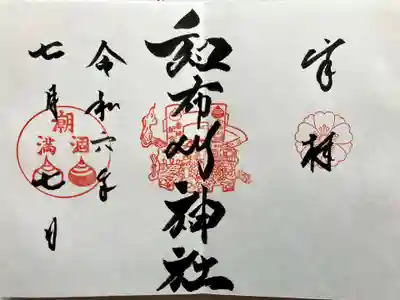 奉拝
和布刈神社
令和六年
七月七日
満